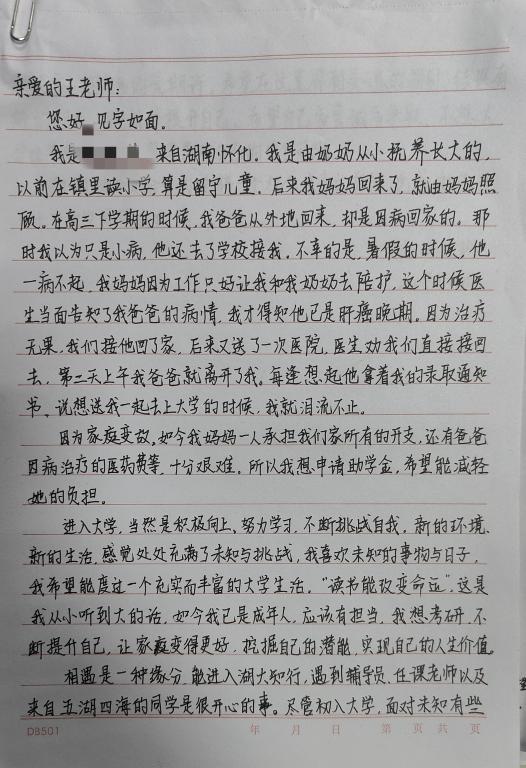 亲爱的王老师:
您好,见字如面。
我是 来自湖南怀化。我是由奶奶从小抚养长大的,
以前在镇里读小学,算是留守儿童,后来我妈妈回来了,就由妈妈照
顾。在高三下学期的时候,我爸爸从外地回来,却是因病回家的。那
时我以为只是小病,他还去了学校接我。不幸的是,暑假的时候,他
一病不起,我妈妈因为工作只好让我和我奶奶去陪护,这个时候医
生当面告知了我爸爸的病情,我才得知他已是肝癌晚期。因为治疗
无果,我们接他回了家,后来又送了一次医院,医生劝我们直接接回
去,第二天上午我爸爸就离开了我。每逢想起他拿着我的录取通知
书、说想送我一起去上大学的时候,我就泪流不止。
因为家庭变故,如今我妈妈一人承担我们家所有的开支,还有爸爸
因病治疗的医药费等,十分艰难。所以我想申请助学金,希望能减轻
她的负担。
进入大学,当然是积极向上、努力学习,不断挑战自我,新的环境、
新的生活,感觉处处充满了未知与挑战,我喜欢未知的事物与日子,
我希望能度过一个充实而丰富的大学生活。“读书能改变命运”,这是
我从小听到大的话,如今我已是成年人,应该有担当,我想考研,不
断提升自己,让家庭变得更好,挖掘自己的潜能,实现自己的人生价值。
相遇是一种缘分,能进入湖大知行,遇到辅导员、任课老师以及
来自五湖四海的同学是很开心的事。尽管初入大学,面对未知有些
DB501 年 月 日 第 页 共 页